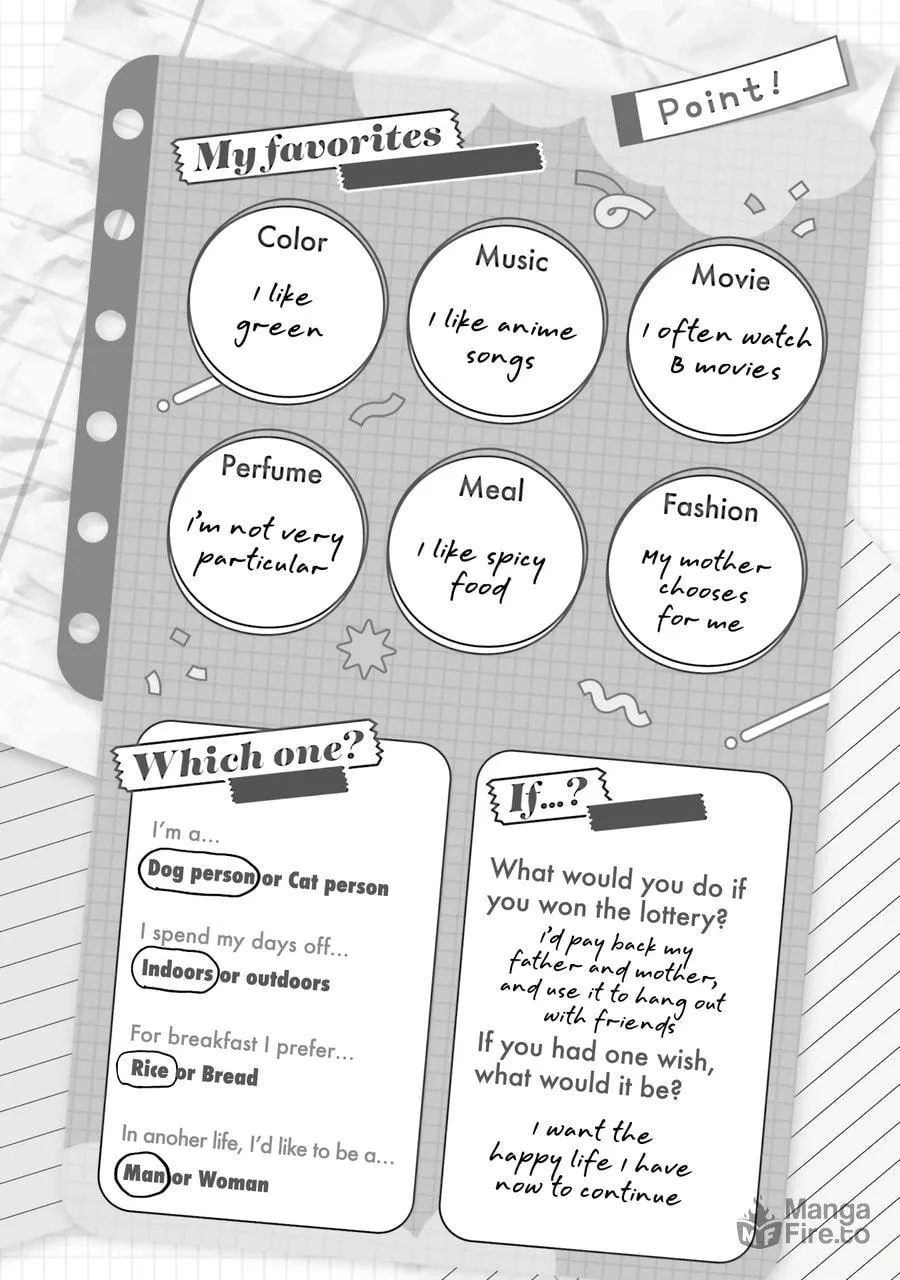 Point!
My favorites
Color
I like
green
Music
I like anime
songs
Movie
I often watch
B movies
Perfume
i'm not very
particular
Meal
I like spicy
food
Fashion
My mother
chooses
for me
Which one?
I'm a...
Dog person or Cat person
I spend my days off...
Indoors or outdoors
For breakfast I prefer...
Rice or Bread
In anoher life, I'd like to be a...
Man or Woman
If...?
What would you do if
you won the lottery?
i'd pay back my
father and mother,
and use it to hang out
with friends
If you had one wish,
what would it be?
I want the
happy life I have
now to continue
MF
Manga
Fire.to